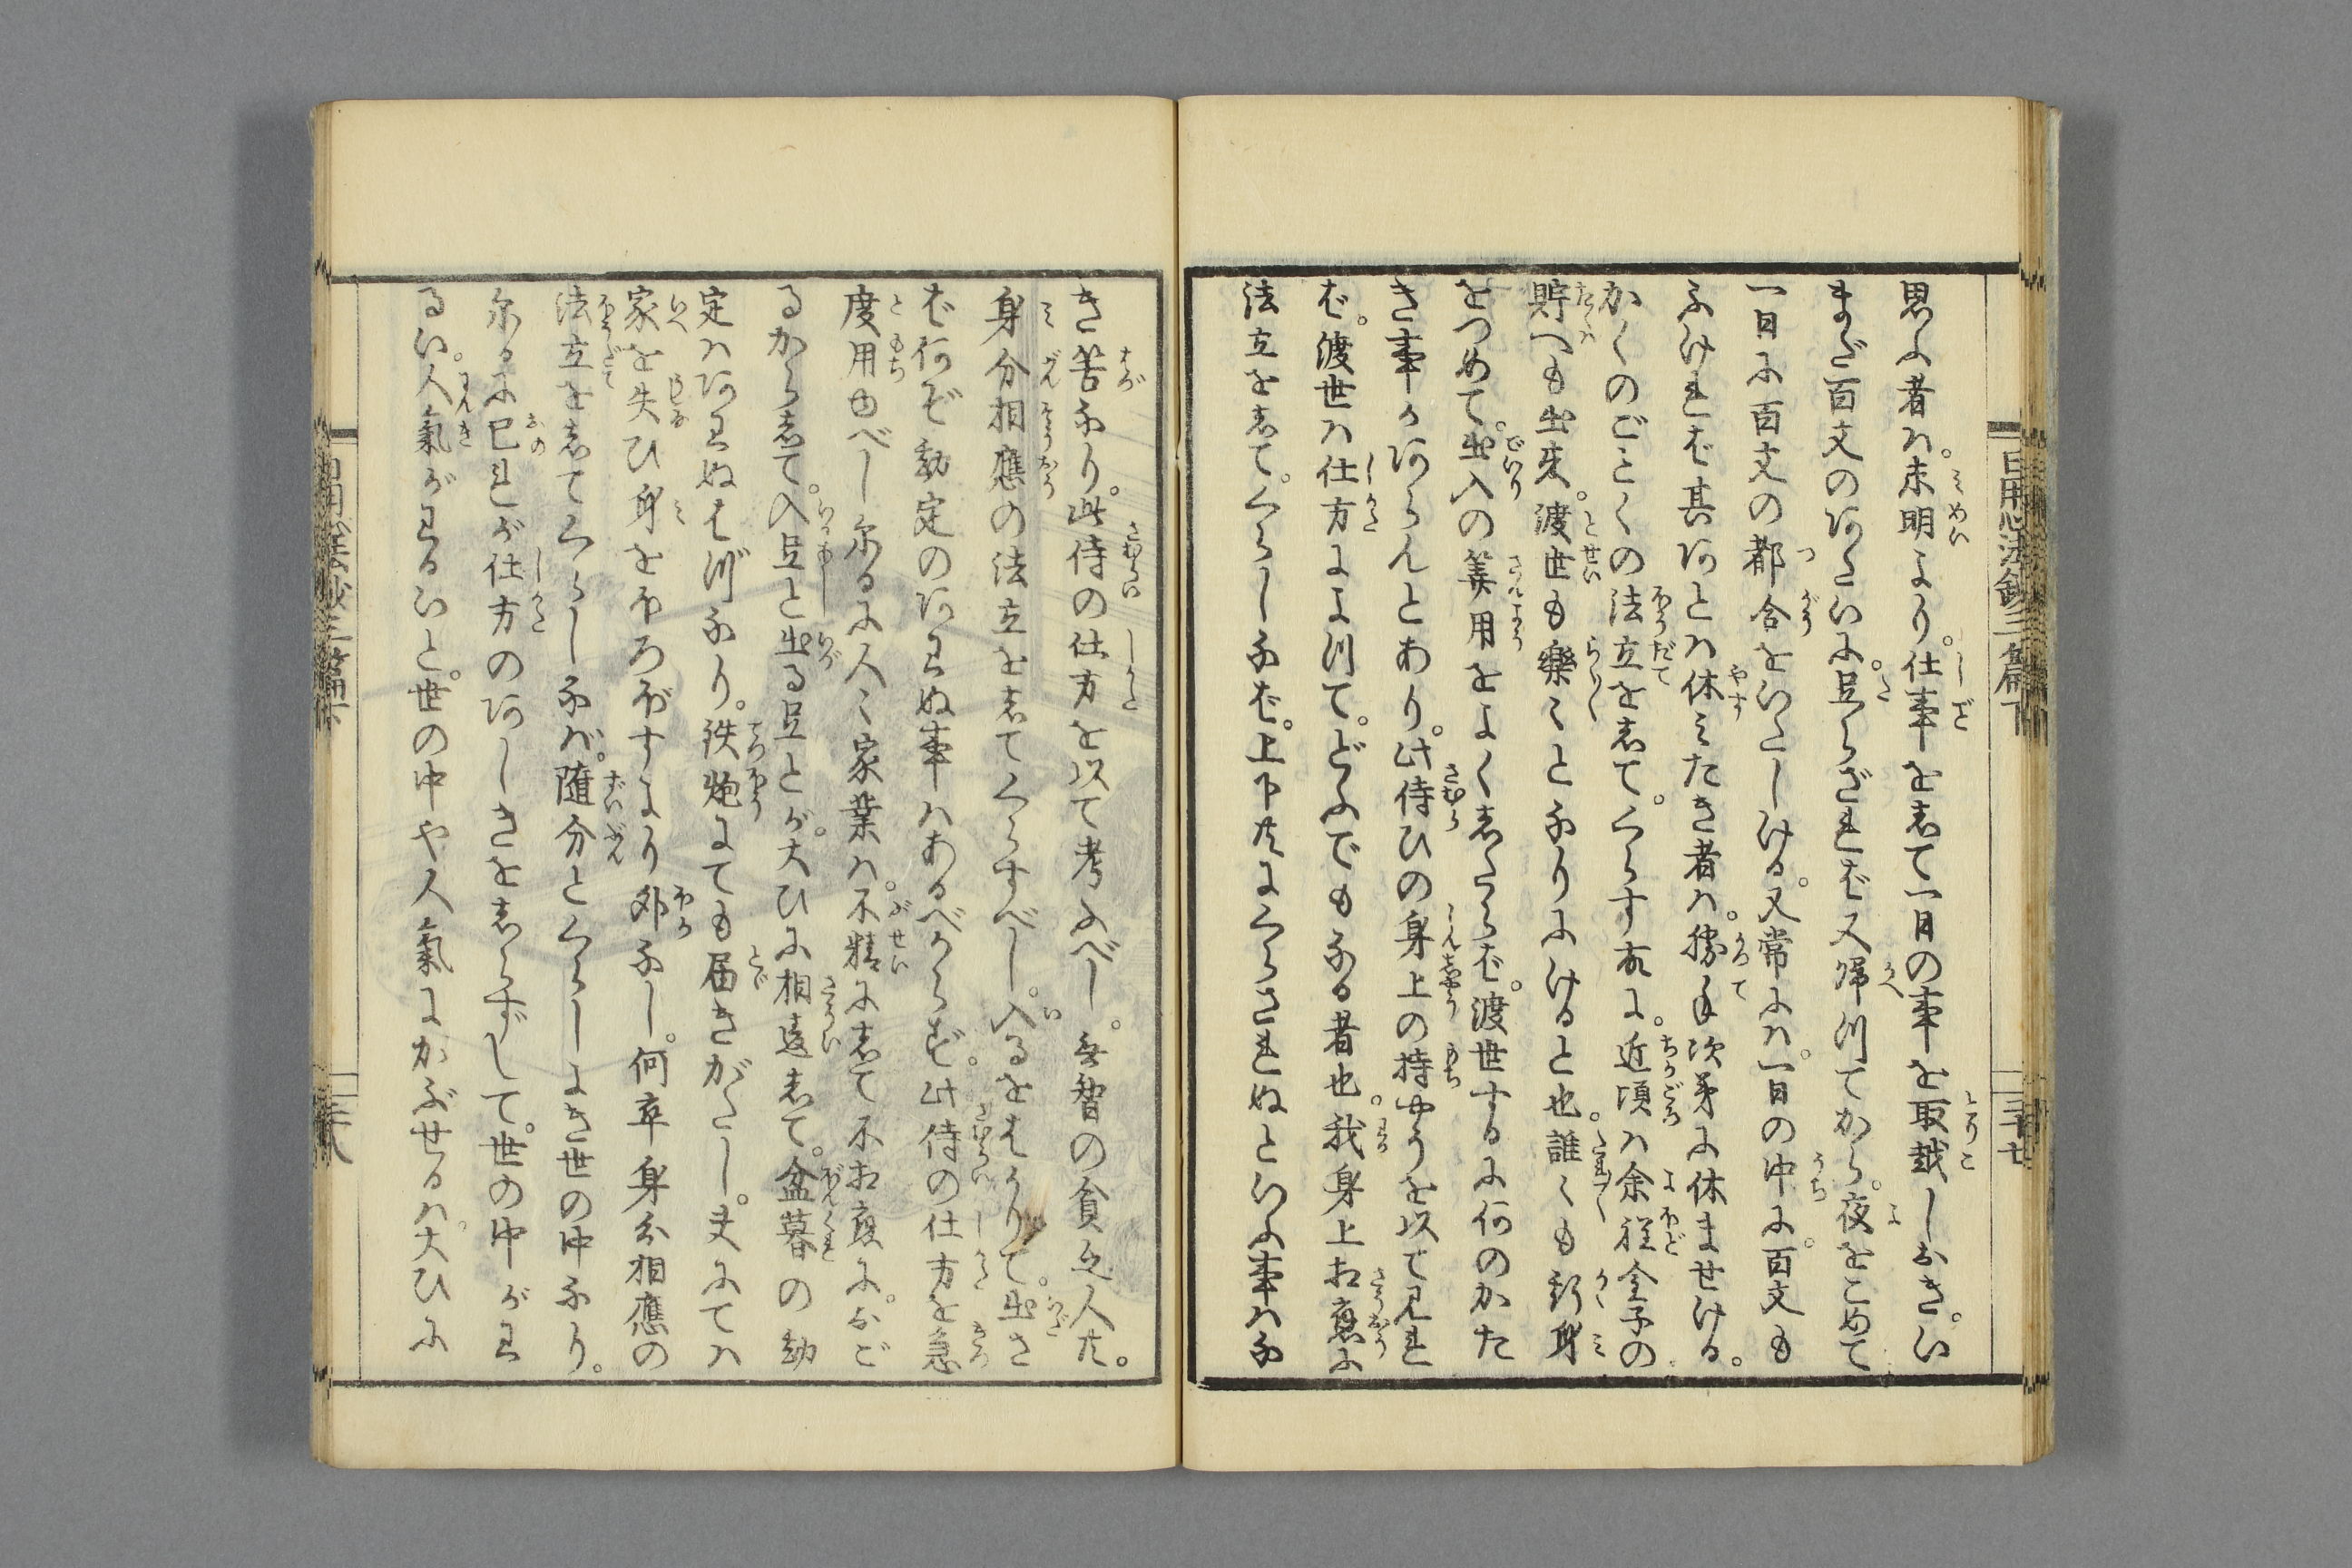 思ふ者ハ。未明より。仕事を志て一月の事を取越しおき。い
まだ百文のあたいに。足らざれバ又帰ツてから。夜をこめて
一日に百文の都合をいたしける。又常にハ。一日の中に。百文も
ふけれバ其あとハ休ミたき者ハ。勝手次第に休ませける。
かくのごとくの法立を志て。くらす故に。近頃ハ余程金子の
貯へも出来。渡世も樂〻となりにけると也。誰〻も我身
をつめて。出入の筭用をよく志たらバ。渡世するに何のかた
き事かあらんとあり。此侍ひの身上の持やうを以て見れ
バ。渡世ハ仕方によツて。どふでもなる者也。我身上相應に
法立を志て。くらしなバ。上下共にくらされぬといふ事ハな
き筈なり。此侍の仕方を以て考ふべし。無智の貧乏人共。
身分相應の法立を志てくらすべし。入るをはかりて。出さ
バ何ぞ勘定のあわぬ事ハあるべからず。此侍の仕方を急
度用ゆべし尓るに人〻家業ハ。不精に志て不相應に。おご
るから志て。入足と出る足とが。大ひに相違志て。盆暮の勘
定ハあわぬはづなり。鉄炮にても届きがたし。丈にてハ
家を失ひ身をほろぼすより外なし。何卒身分相應の
法立を志てくらしなバ。随分とくらしよき世の中なり。
尓るに己れが仕方のあしきを志らずして。世の中がわ
るい。人氣がわるいと。世の中や人氣にかぶせるハ。大ひに
日用心法鈔三篇下
三十七